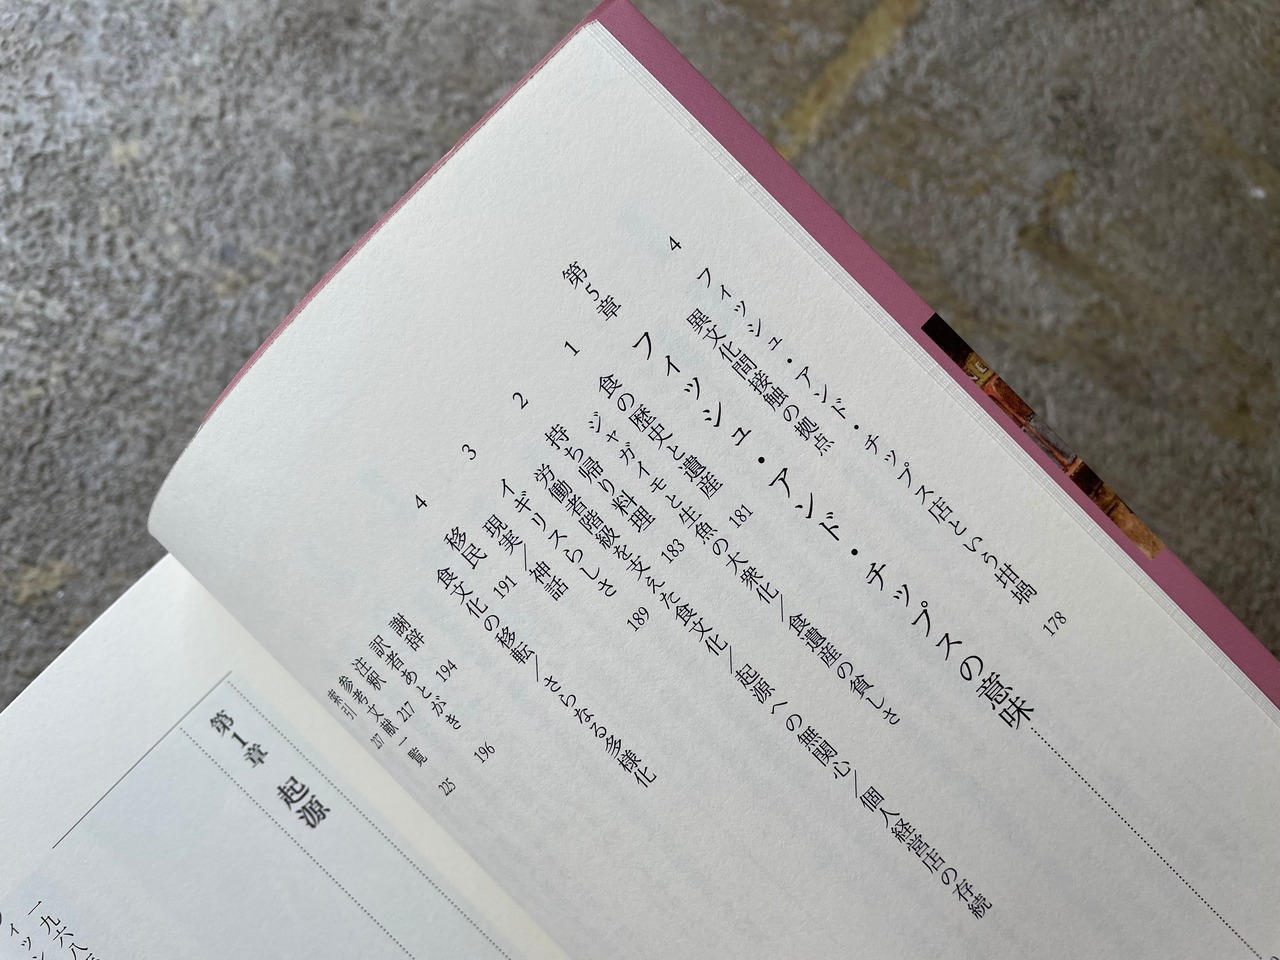 4 フィッシュ・アンド・チップス店という坩堝 178
異文化間接触の拠点
第5章 フィッシュ・アンド・チップスの意味
1 食の歴史と遺産 181
ジャガイモと生魚の大衆化/食遺産の貧しさ
2 持ち帰り料理 183
労働者階級を支えた食文化/起源への無関心/個人経営店の存続
3 イギリスらしさ 189
現実/神話
4 移民 191
食文化の移転/さらなる多様化
謝辞 194
訳者あとがき 196
注釈 217
参考文献一覧 225
索引 237
第1章 起源
一九六八
ィッシ